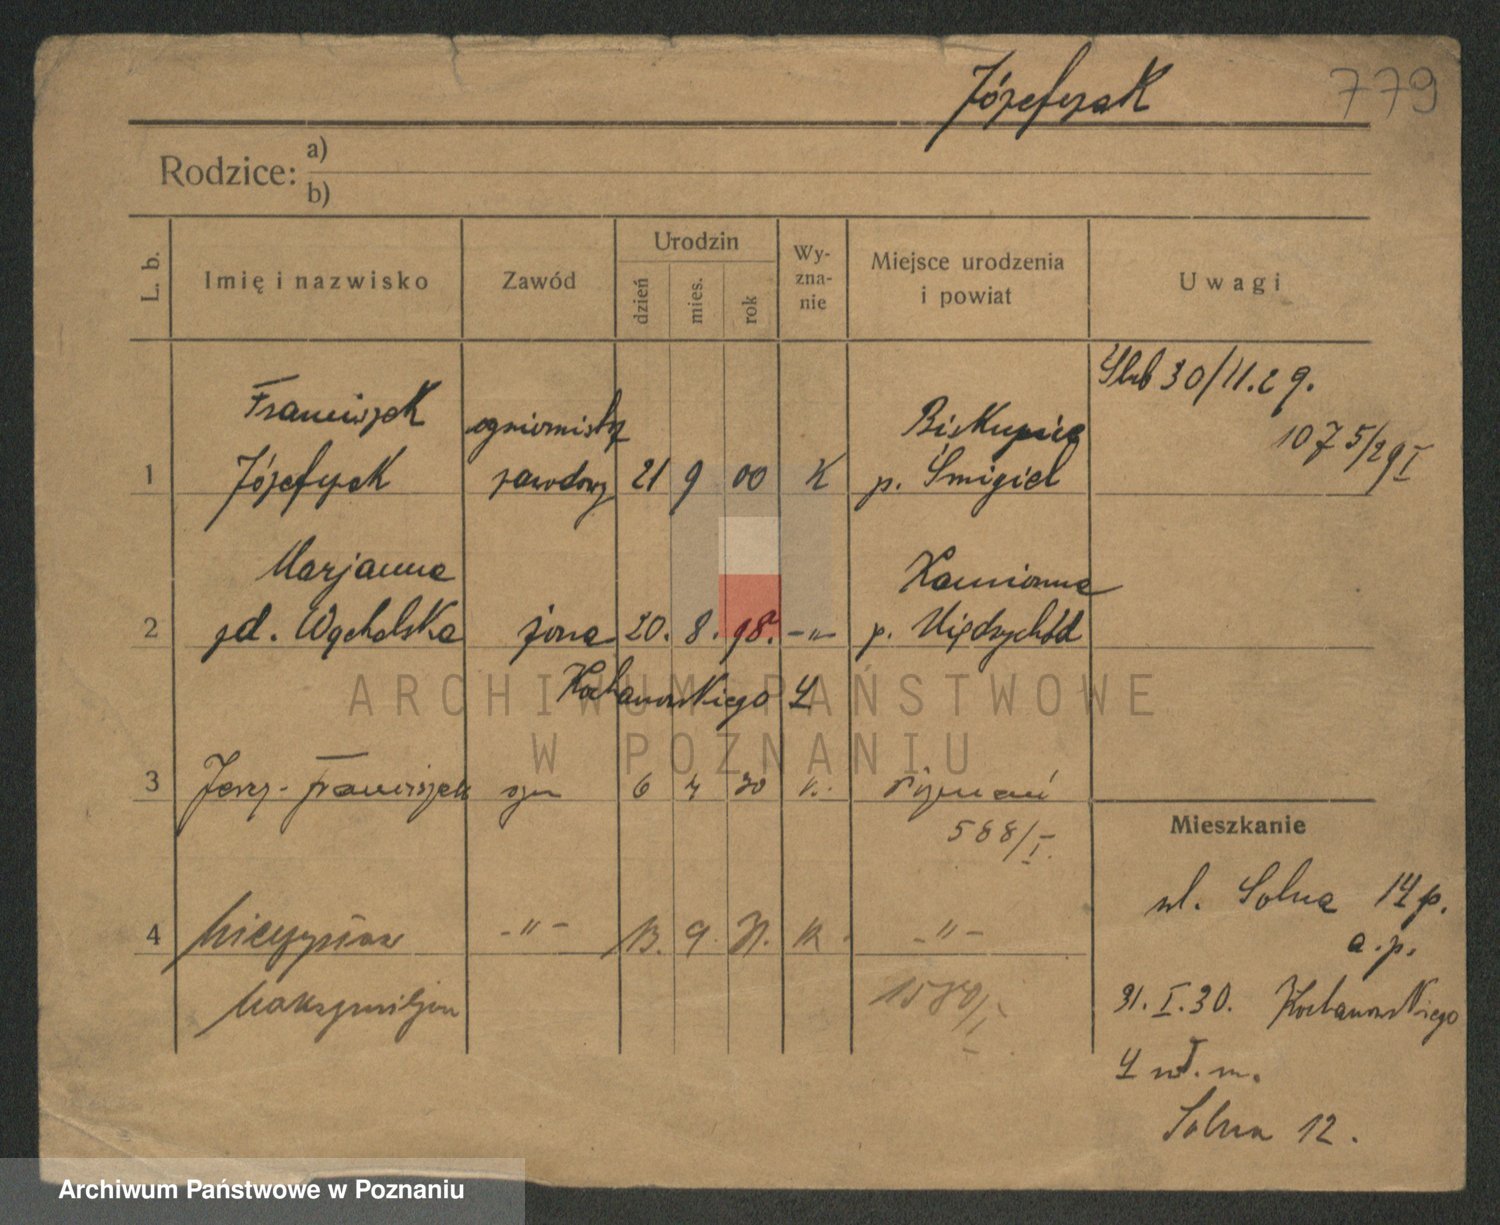 Józefczak 779
Rodzice: a)
b)
L. b. Imię i nazwisko Zawód Urodzin dzień mies. rok Wy-zna-nie Miejsce urodzenia i powiat Uwagi
Ślub 30/11.29.
1075/29 I
Franciszek ogniomistrz Biskupice
1 Józefczak zawodowy 21 9 00 K p. Śmigiel
Marjanna Kamionna
2 zd. Wąchalska żona 20. 8. 98. -"- p. Międzychód
Kochanowskiego 4
3 Jerzy-Franciszek syn 6 4 30 K. Poznań
588/I.
4 Mieczysław -"- 13. 9. 31. K -"-
Maksymiljan 1580/I
Mieszkanie
ul. Solna 14 p.
a. p.
31. I. 30. Kochanowskiego
4 wł. m.
Solna 12.
ARCHIWUM PAŃSTWOWE
W POZNANIU
Archiwum Państwowe w Poznaniu